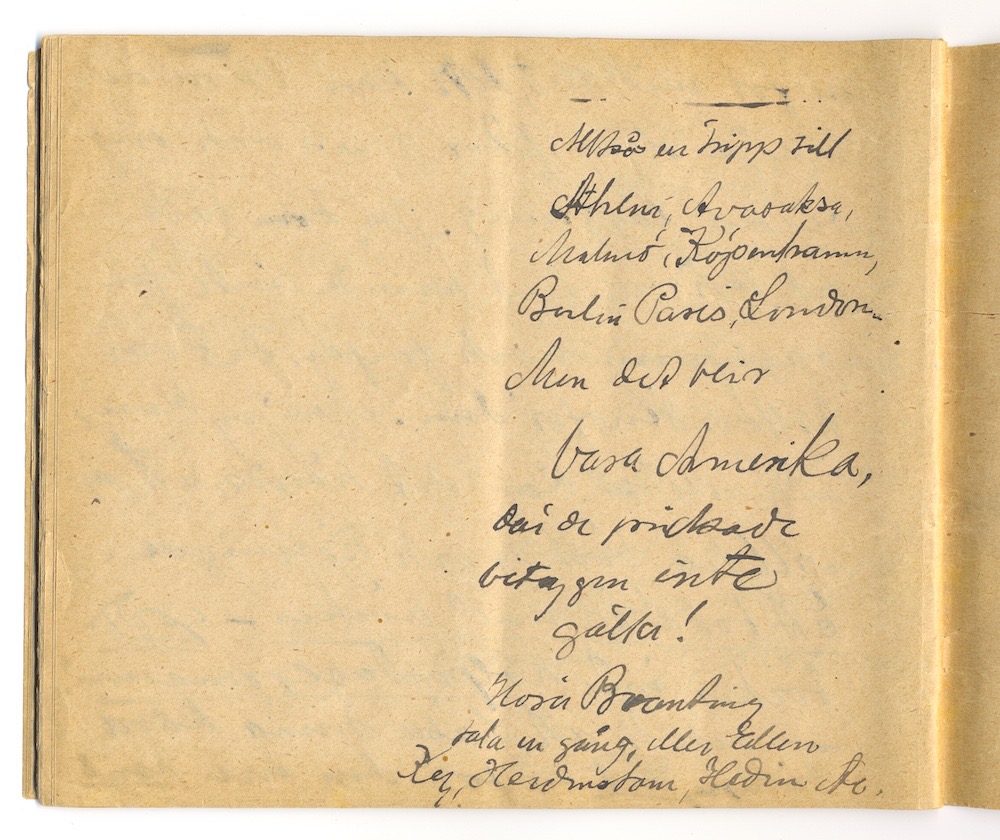 Alltså en tripp till
Athen, Avasaksa,
Malmö, Köpenhamn,
Berlin Paris, London
Men det blir
bara Amerika,
där de prickade
betygen inte
gälla!
Höra Branting
tala en gång, eller Ellen
Key, Heidenstam, Hedin etc.